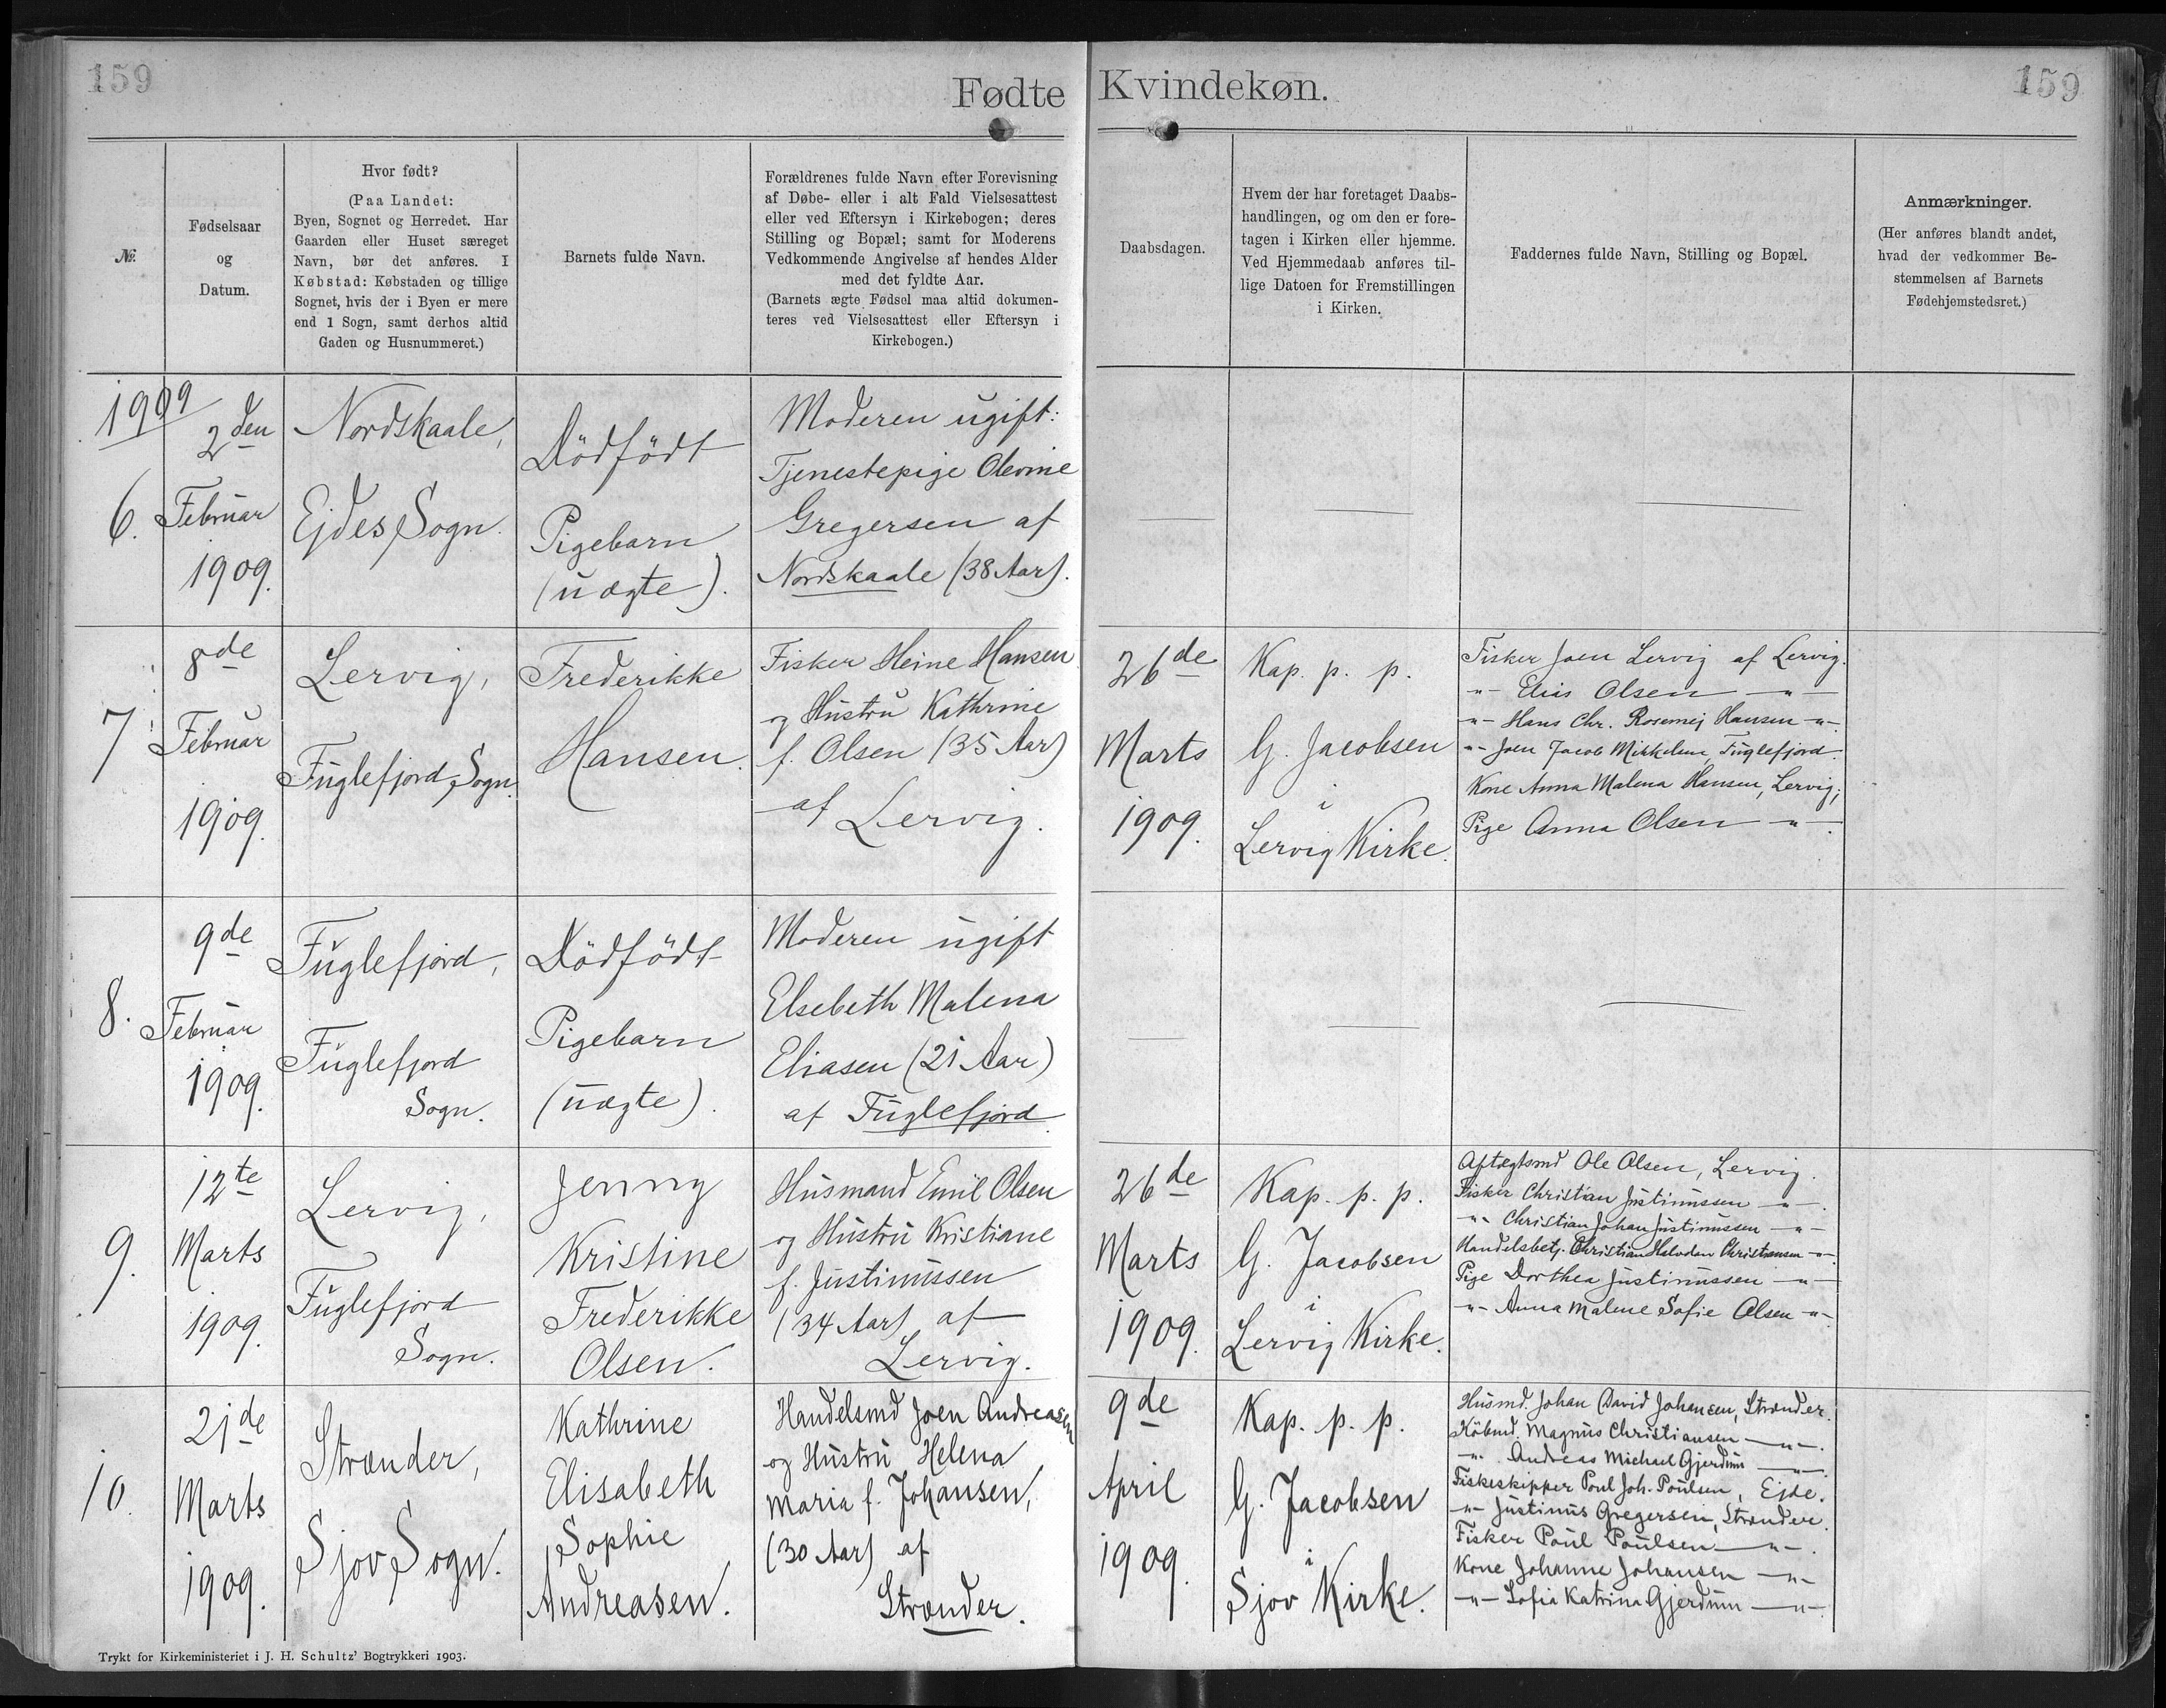 159
Fødte
Kvindekøn.
159
№
Fødselsaar
og
Datum.
Hvor født?
(Paa Landet:
Byen, Sognet og Herredet. Har
Gaarden eller Huset særeget
Navn, bør det anføres. I
Købstad: Købstaden og tillige
Sognet, hvis der i Byen er mere
end 1 Sogn, samt derhos altid
Gaden og Husnummeret.)
Barnets fulde Navn.
Forældrenes fulde Navn efter Forevisning
af Døbe- eller i alt Fald Vielsesattest
eller ved Eftersyn i Kirkebogen; deres
Stilling og Bopæl; samt for Moderens
Vedkommende Angivelse af hendes Alder
med det fyldte Aar.
(Barnets ægte Fødsel maa altid dokumen-
teres ved Vielsesattest eller Eftersyn i
Kirkebogen.)
Daabsdagen.
Hvem der har foretaget Daabs-
handlingen, og om den er fore-
tagen i Kirken eller hjemme.
Ved Hjemmedaab anføres til-
lige Datoen for Fremstillingen
i Kirken.
Faddernes fulde Navn, Stilling og Bopæl.
Anmærkninger.
(Her anføres blandt andet,
hvad der vedkommer Be-
stemmelsen af Barnets
Fødehjemstedsret.)
1909
6.
2den
Februar
1909.
Nordskaale,
Ejdes Sogn.
Dödfödt
Pigebarn
(uægte).
Moderen ugift:
Tjenestepige Olevine
Gregersen af
Nordskaale (38 Aar).
7
8de
Februar
1909.
Lervig,
Fuglefjord Sogn.
Frederikke
Hansen.
Fisker Heine Hansen
og Hustru Kathrine
f. Olsen (35 Aar)
af Lervig.
26de
Marts
1909.
Kap. p. p.
G. Jacobsen
i
Lervig Kirke.
Fisker Joen Lervig af Lervig.
-"- Elias Olsen -"-
-"- Hans Chr. Rosemej Hansen -"-
-"- Joen Jacob Mikkelsen, Fuglefjord.
Kone Anna Malena Hansen, Lervig;
Pige Anna Olsen -"-.
8.
9de
Februar
1909.
Fuglefjord,
Fuglefjord
Sogn.
Dödfödt
Pigebarn
(uægte).
Moderen ugift
Elsebeth Malena
Eliasen (21 Aar)
af Fuglefjord.
9.
12te
Marts
1909.
Lervig,
Fuglefjord
Sogn.
Jenny
Kristine
Frederikke
Olsen.
Husmand Emil Olsen
og Hustru Kristiane
f. Justinussen
(34 Aar) af
Lervig.
26de
Marts
1909.
Kap. p. p.
G. Jacobsen
i
Lervig Kirke.
Aftægtsmd Ole Olsen, Lervig.
Fisker Christian Justinussen -"-.
-"- Christian Johan Justinussen -"-
Handelsbetj. Christian Halvdan Christiansen -"-
Pige Dorthea Justinussen -"-
-"- Anna Malene Sofie Olsen -"-.
10.
21de
Marts
1909.
Strænder,
Sjov Sogn.
Kathrine
Elisabeth
Sophie
Andreasen.
Handelsmd Joen Andreasen
og Hustru Helena
Maria f. Johansen,
(30 Aar) af
Strænder.
9de
April
1909.
Kap. p. p.
G. Jacobsen
i
Sjov Kirke.
Husmd. Johan David Johansen, Strænder.
Köbmd. Magnus Christiansen -"-.
-"- Andreas Michael Gjerdum -"-.
Fiskeskipper Poul Joh. Poulsen, Ejde.
-"- Justinus Gregersen, Strænder.
Fisker Poul Poulsen -"-.
Kone Johanne Johansen -"-
-"- Sofia Katrina Gjerdum -"-.
Trykt for Kirkeministeriet i J. H. Schultz' Bogtrykkeri 1903.